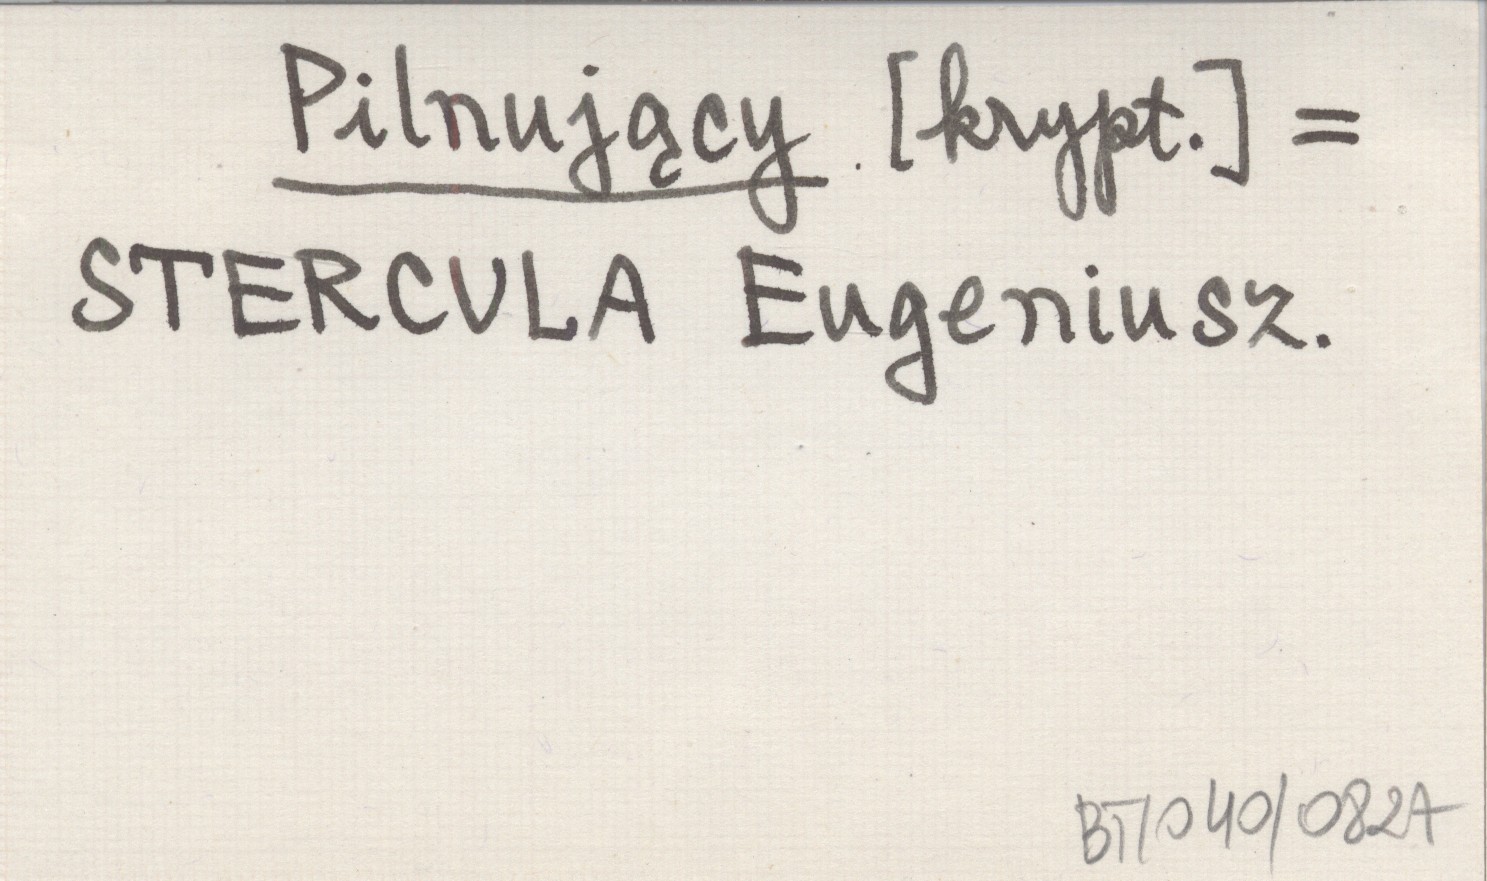 Pilnujący [krypt.] =
STERCULA Eugeniusz.
BT/040/082A